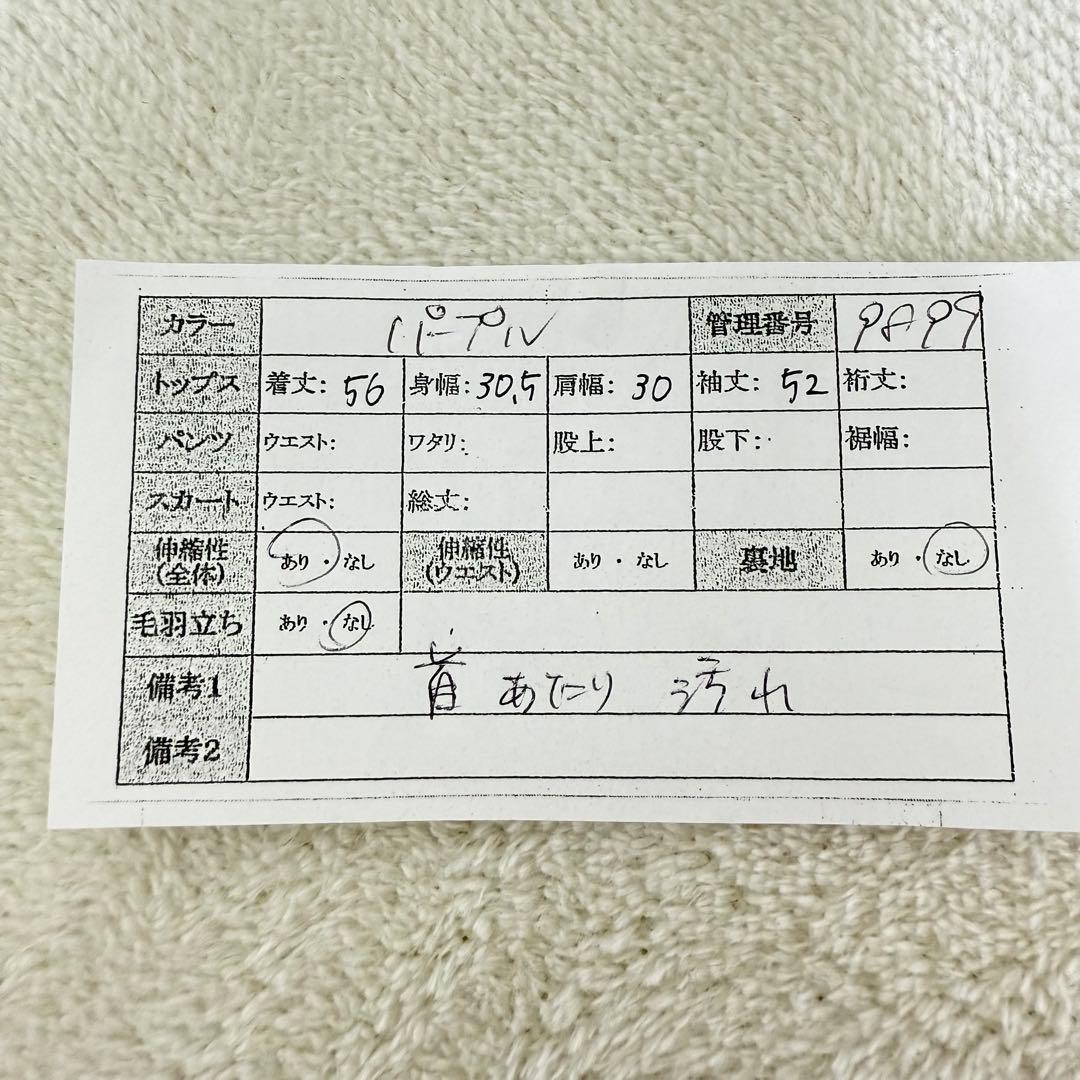 カラー パープル 管理番号 9A99
トップス 着丈: 56 身幅: 30,5 肩幅: 30 袖丈: 52 裄丈:
パンツ ウエスト: ワタリ: 股上: 股下: 裾幅:
スカート ウエスト: 総丈:
伸縮性(全体) あり・なし 伸縮性(ウエスト) あり・なし 裏地 あり・なし
毛羽立ち あり・なし
備考1 首あたり 汚れ
備考2